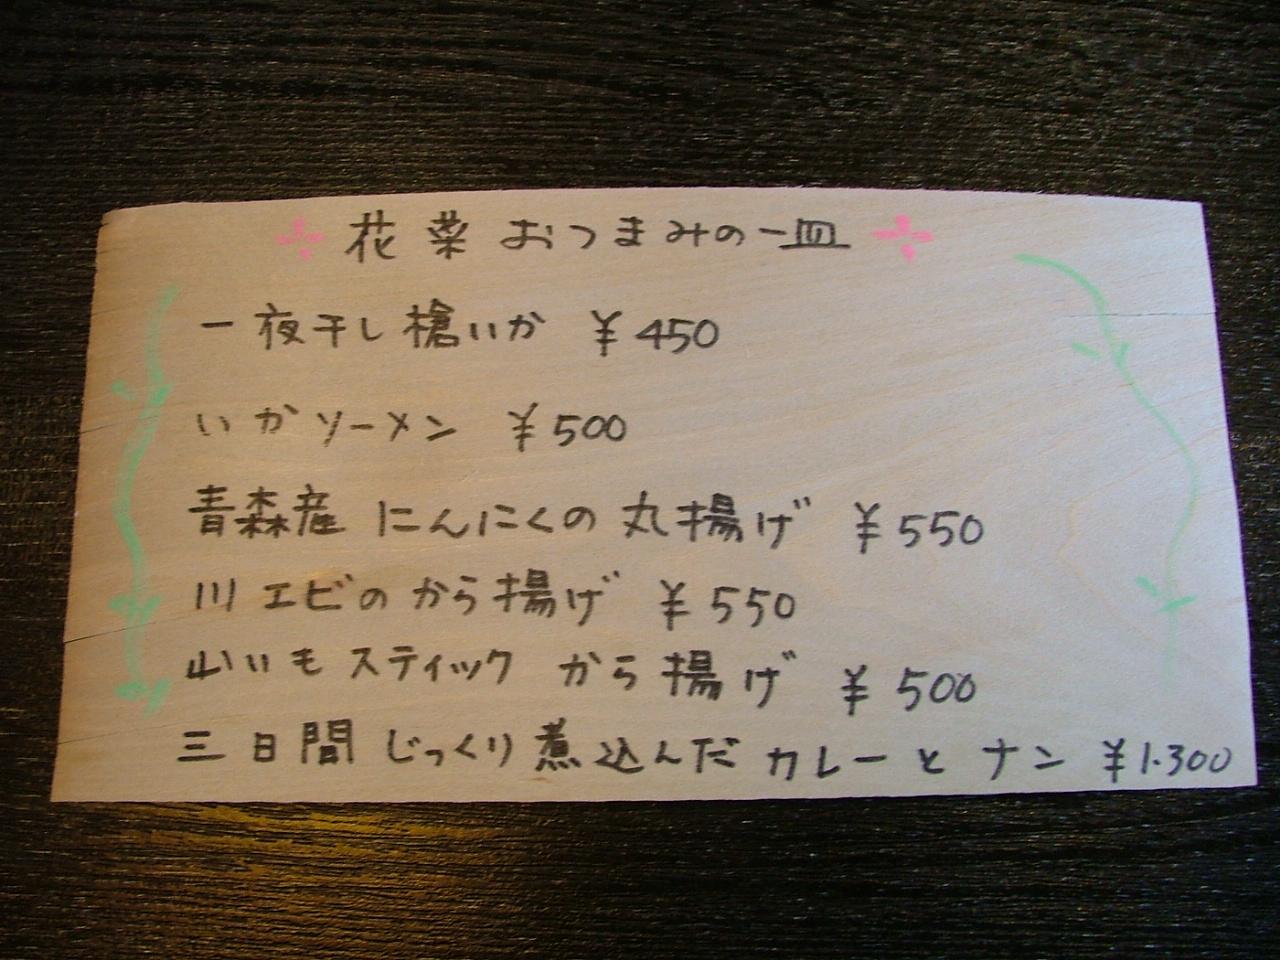 花菜 おつまみの一皿
一夜干し槍いか ¥450
いかソーメン ¥500
青森産 にんにくの 丸揚げ ¥550
川エビの から揚げ ¥550
山いも スティック から揚げ ¥500
三日間 じっくり 煮込んだ カレーと ナン ¥1.300